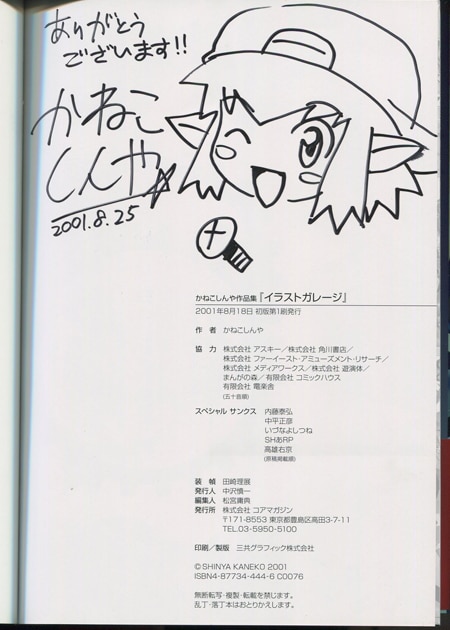 ありがとう
ございます!!
かねこ
しんや
2001.8.25
かねこしんや作品集『イラストガレージ』
2001年8月18日 初版第1刷発行
作 者 かねこしんや
協 力 株式会社 アスキー／株式会社 角川書店／
株式会社 ファーイースト・アミューズメント・リサーチ／
株式会社 メディアワークス／株式会社 遊演体／
まんがの森／有限会社 コミックハウス
有限会社 竜楽舎
(五十音順)
スペシャル サンクス 内藤泰弘
中平正彦
いづなよしつね
SHあRP
高雄右京
(原稿掲載順)
装 幀 田崎理展
発行人 中沢慎一
編集人 松宮庸典
発行所 株式会社 コアマガジン
〒171-8553 東京都豊島区高田3-7-11
TEL.03-5950-5100
印刷／製版 三共グラフィック株式会社
©SHINYA KANEKO 2001
ISBN4-87734-444-6 C0076
無断転写・複製・転載を禁じます。
乱丁・落丁本はおとりかえします。